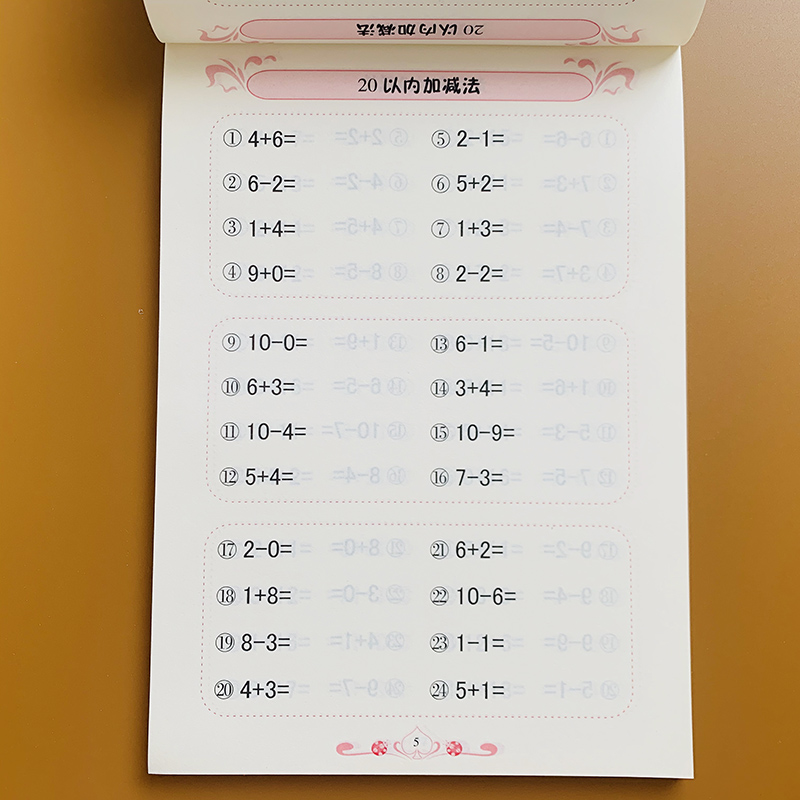 20 以内加减法
20 以内加减法
① 4+6=
② 6−2=
③ 1+4=
④ 9+0=
⑤ 2−1=
⑥ 5+2=
⑦ 1+3=
⑧ 2−2=
⑨ 10−0=
⑩ 6+3=
⑪ 10−4=
⑫ 5+4=
⑬ 6−1=
⑭ 3+4=
⑮ 10−9=
⑯ 7−3=
⑰ 2−0=
⑱ 1+8=
⑲ 8−3=
⑳ 4+3=
㉑ 6+2=
㉒ 10−6=
㉓ 1−1=
㉔ 5+1=
5